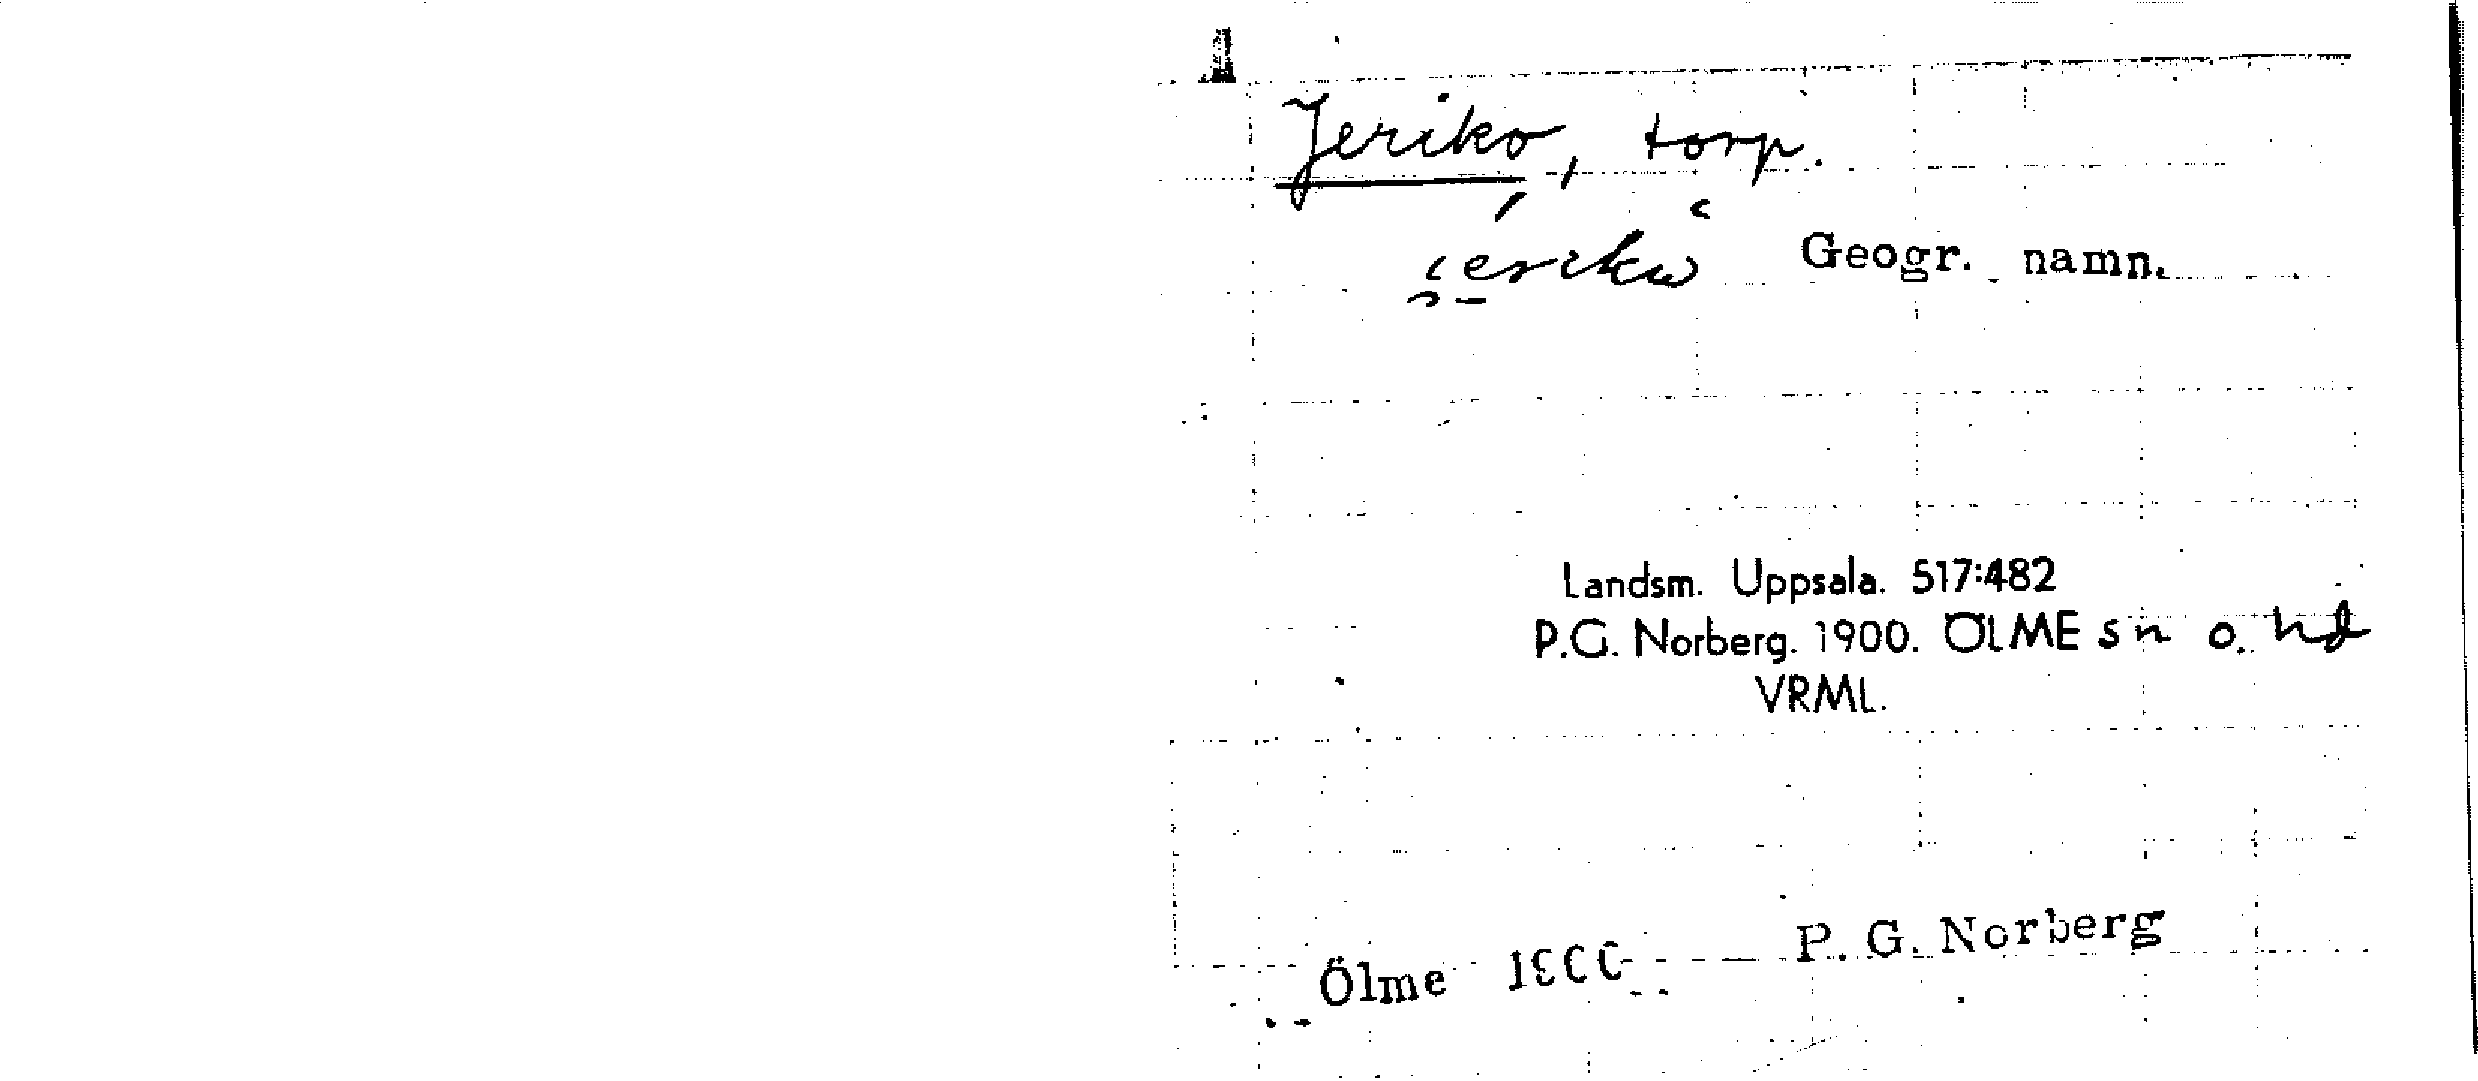 Jeriko, torp.
Geogr. namn.
Landsm. Uppsala. 517:482
P.G. Norberg. 1900. ÖLME sn o. hd
VRML.
Ölme 1900 P. G. Norberg